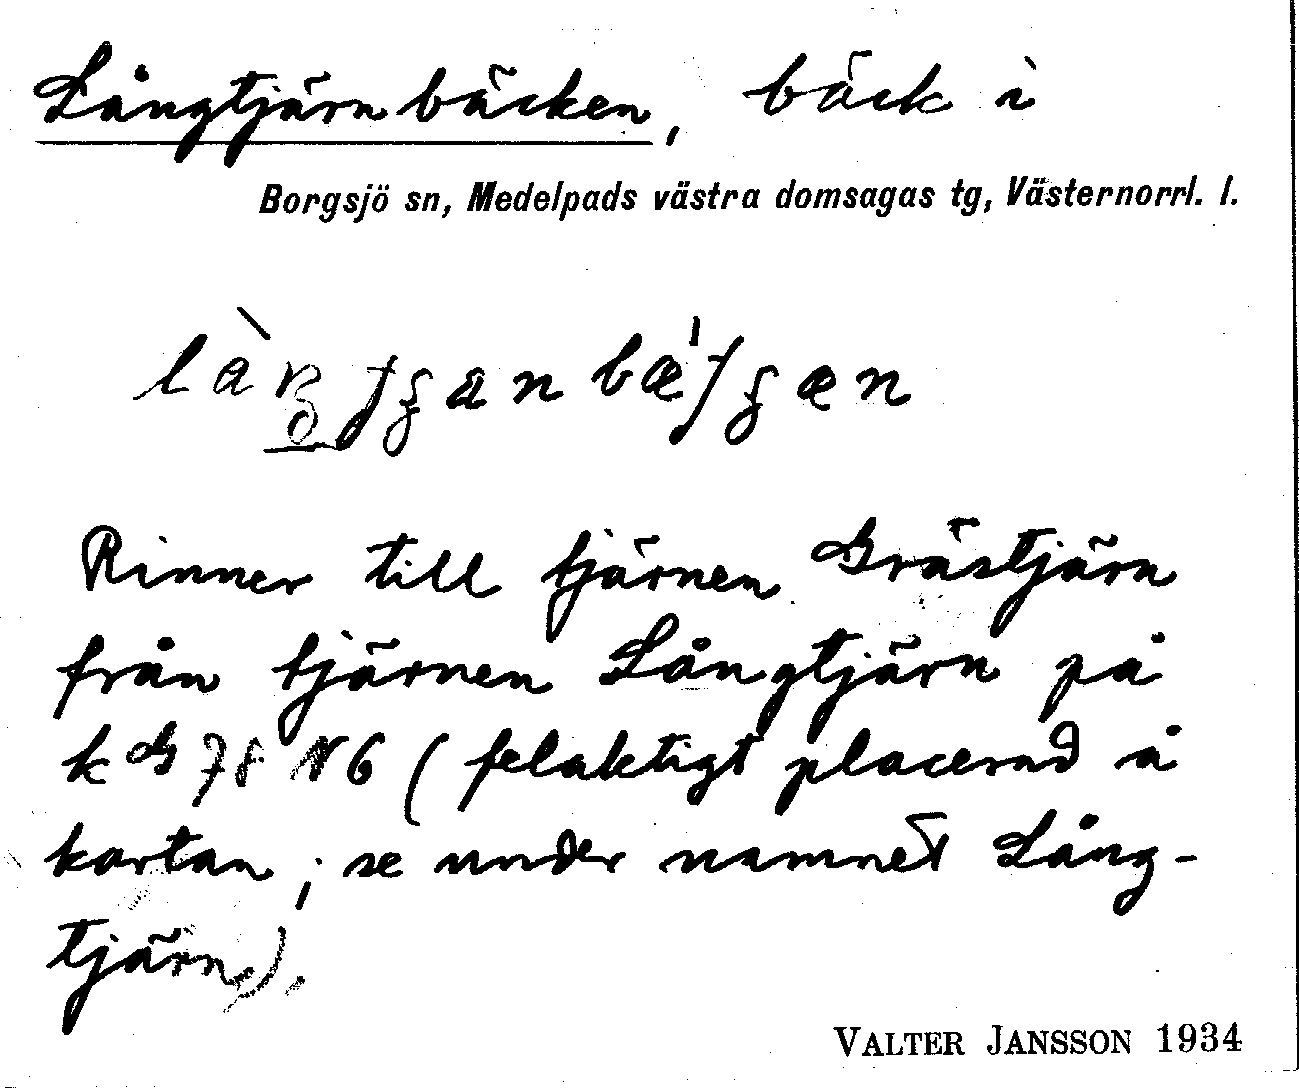 Långtjärnbäcken, bäck i
Borgsjö sn, Medelpads västra domsagas tg, Västernorrl. l.
Rinner till tjärnen Grästjärn
från tjärnen Långtjärn på
k G 78 N6 (felaktigt placerad å
kartan; se under namnet Lång-
tjärn).
VALTER JANSSON 1934